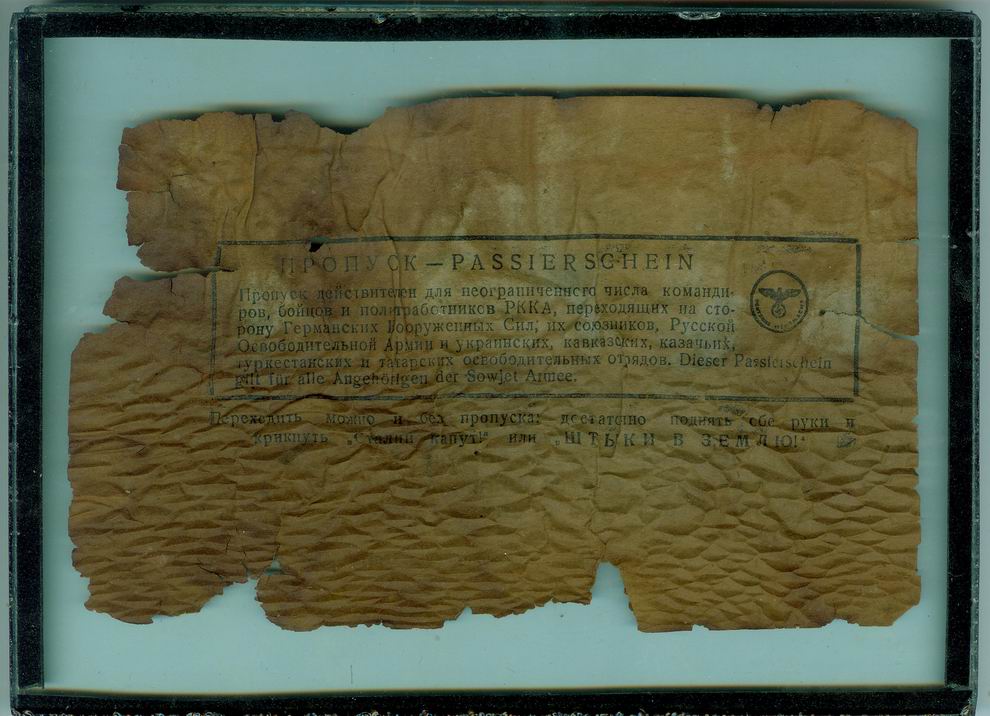 ПРОПУСК — PASSIERSCHEIN
Пропуск действителен для неограниченного числа команди-
ров, бойцов и политработников РККА, переходящих на сто-
рону Германских Вооруженных Сил, их союзников, Русской
Освободительной Армии и украинских, кавказских, казачьих,
туркестанских и татарских освободительных отрядов. Dieser Passierschein
gilt für alle Angehörigen der Sowjet Armee.
Переходить можно и без пропуска: достаточно поднять обе руки и
крикнуть „Сталин капут!“ или „ШТЫКИ В ЗЕМЛЮ!“